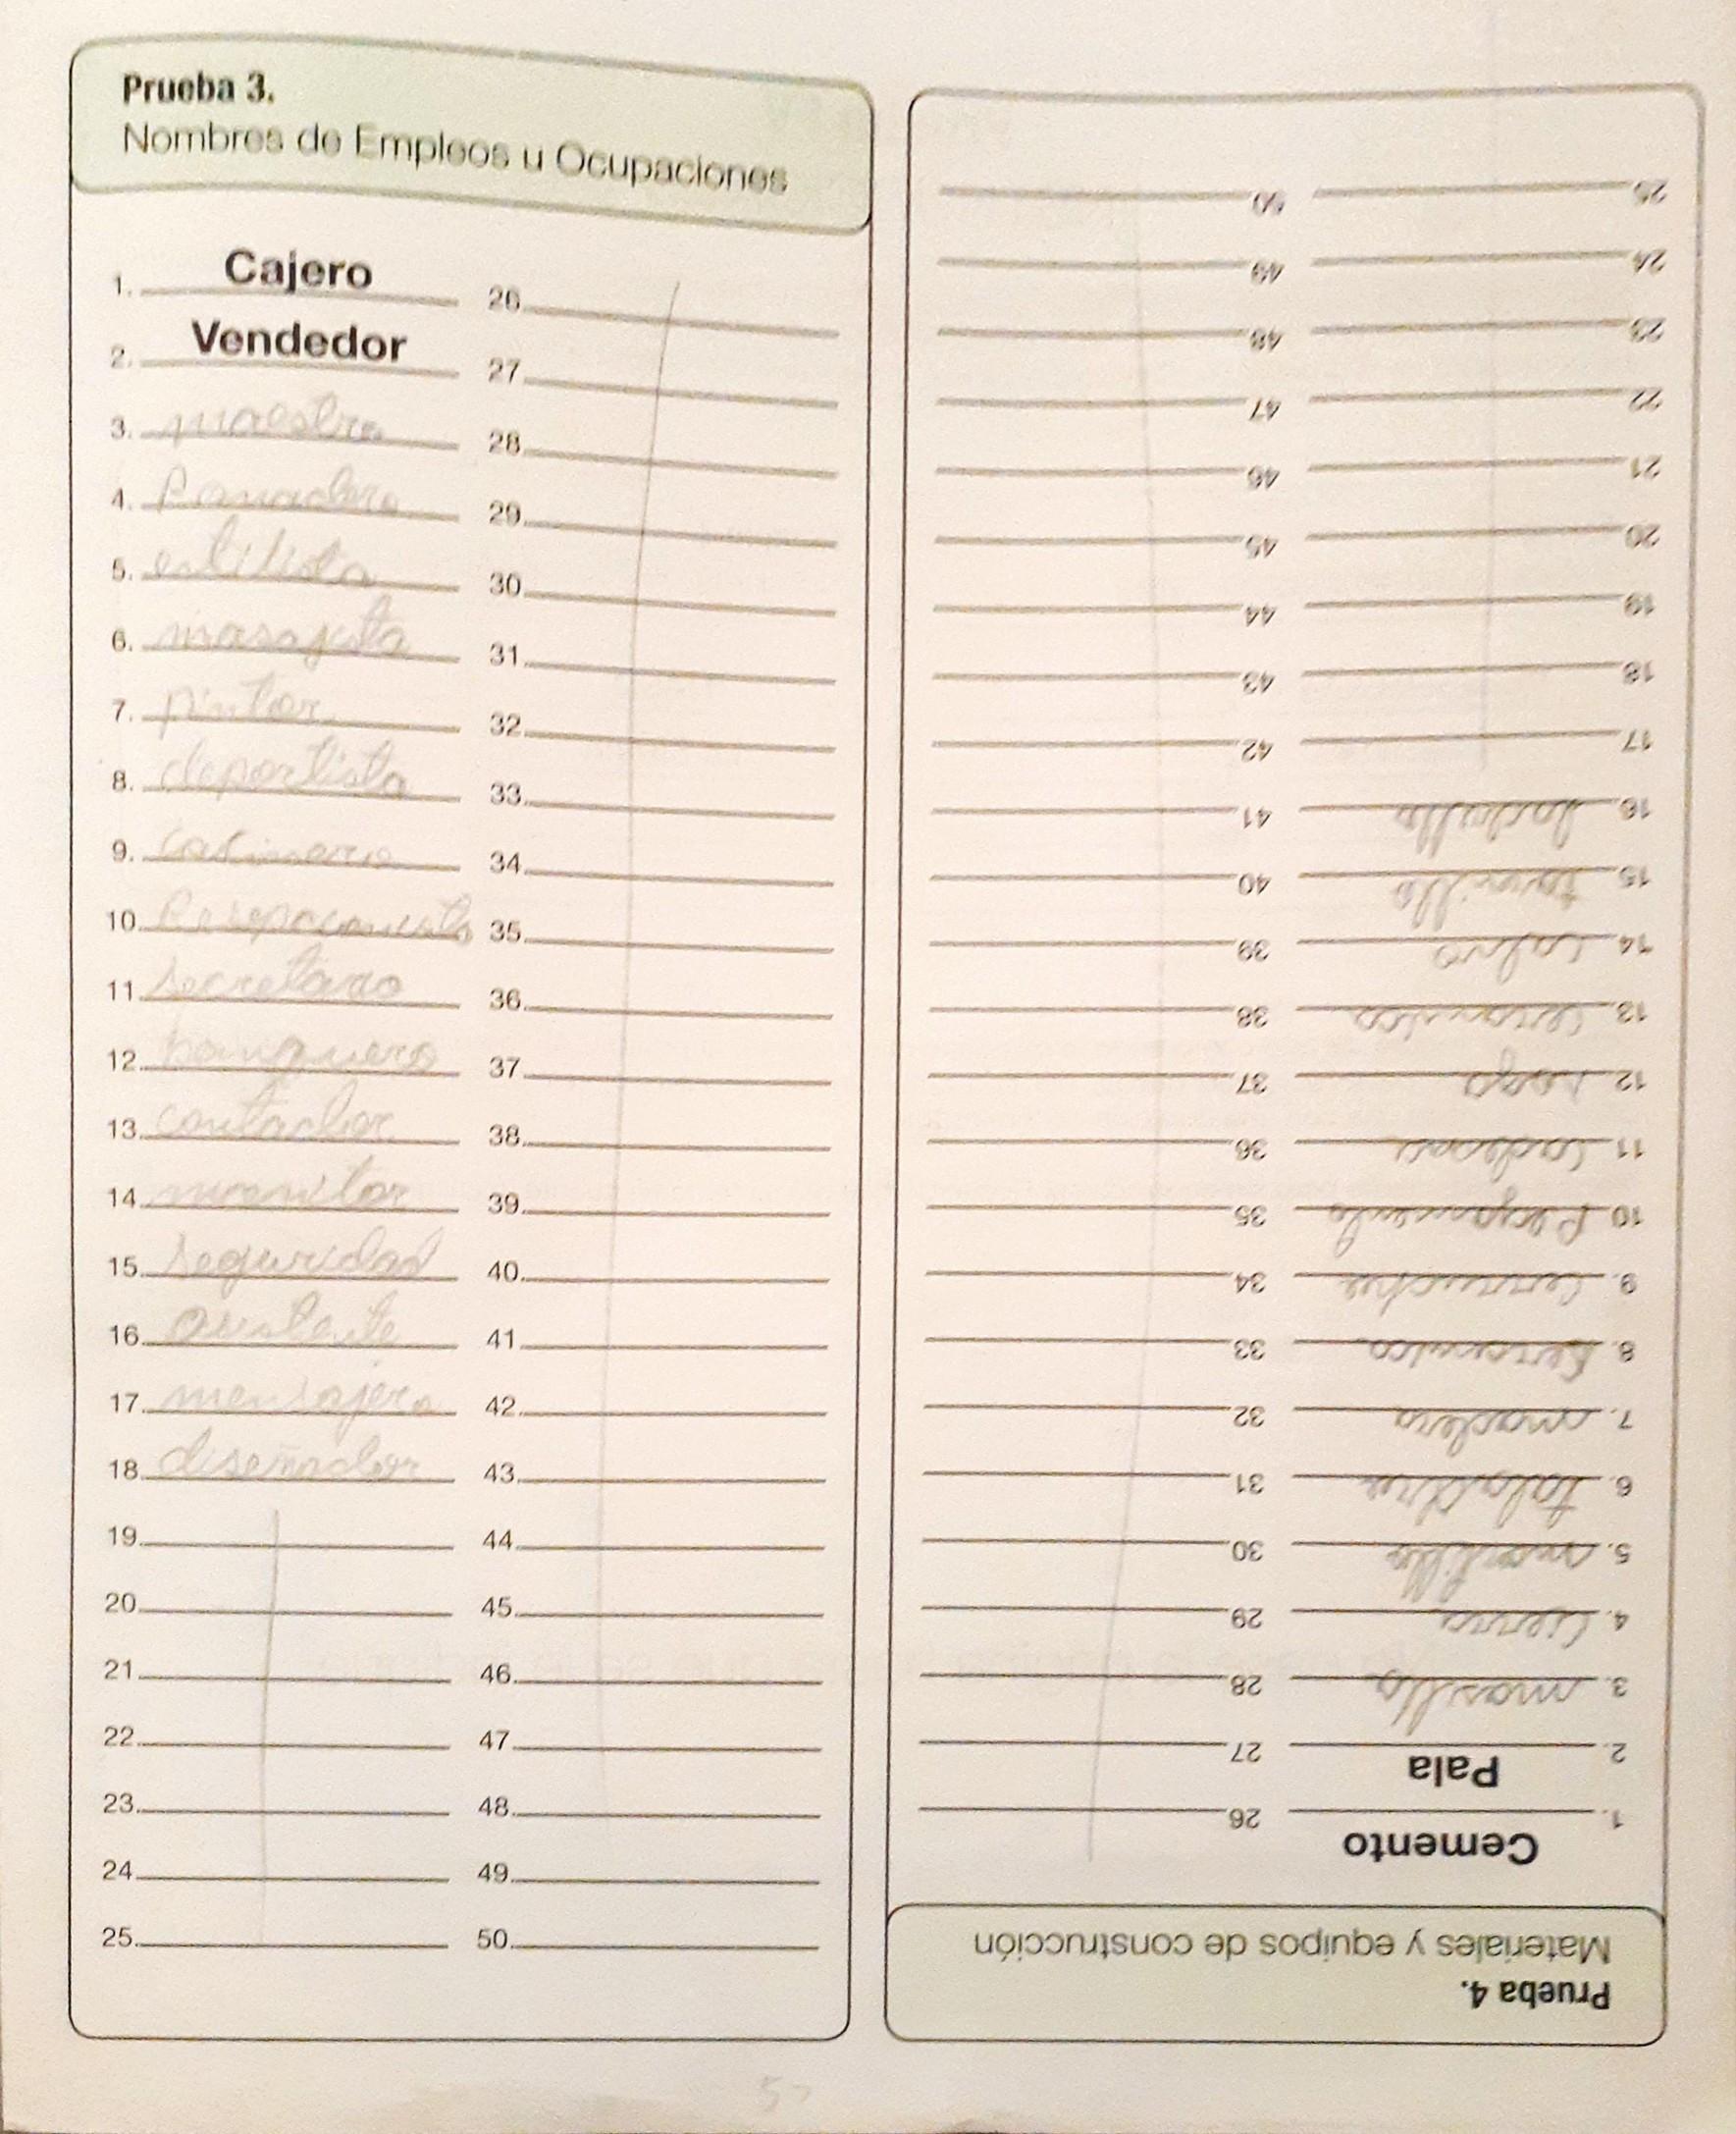 Prueba 3.
Nombres de Empleos u Ocupaciones
1. Cajero
2. Vendedor
3. maestro
4. Panadero
5. estilista
6. masajista
7. pintor
8. deportista
9.
10.
11. secretario
12. banquero
13. contador
14. monitor
15. seguridad
16. asistente
17. mensajero
18. diseñador
19.
20.
21.
22.
23.
24.
25.
26.
27.
28.
29.
30.
31.
32.
33.
34.
35.
36.
37.
38.
39.
40.
41.
42.
43.
44.
45.
46.
47.
48.
49.
50.
Prueba 4.
Materiales y equipos de construcción
1. Cemento
2. Pala
3.
4. cierra
5. martillo
6. taladro
7. madera
8.
9.
10.
11.
12.
13. ceramica
14.
15. tornillo
16. ladrillo
17.
18.
19.
20.
21.
22.
23.
24.
25.
26.
27.
28.
29.
30.
31.
32.
33.
34.
35.
36.
37.
38.
39.
40.
41.
42.
43.
44.
45.
46.
47.
48.
49.
50.